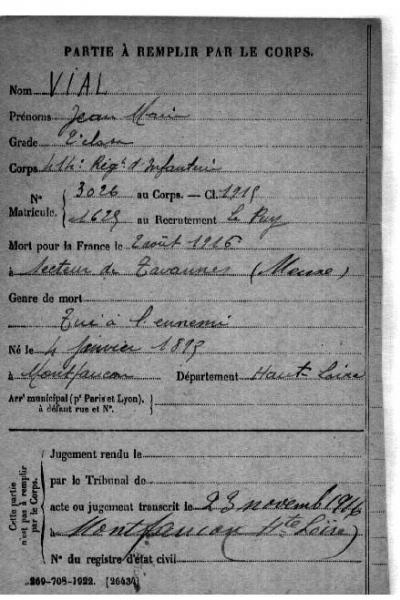 PARTIE À REMPLIR PAR LE CORPS.
Nom VIAL
Prénoms Jean Marie
Grade 2e classe
Corps 414e Régt d'Infanterie
N° 3026 au Corps. — Cl. 1915
Matricule. 1629 au Recrutement Le Puy
Mort pour la France le 2 août 1916
à Secteur de Tavannes (Meuse)
Genre de mort
Tué à l'ennemi
Né le 4 Janvier 1895
à Montfaucon Département Haute Loire
Arrt municipal (pr Paris et Lyon),
à défaut rue et N°.
Cette partie
n'est pas à remplir
par le Corps.
Jugement rendu le
par le Tribunal de
acte ou jugement transcrit le 23 novembre 1916
à Montfaucon (Hte Loire)
N° du registre d'état civil
269-708-1922. [26434]